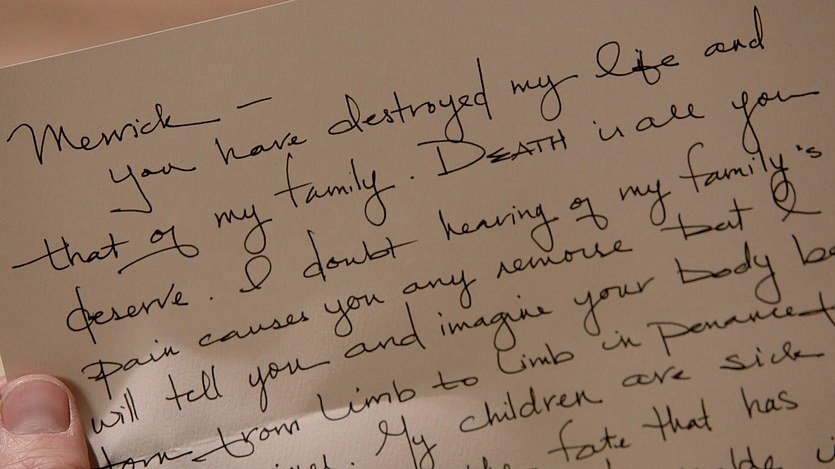 Merrick —
you have destroyed my life and
that of my family. DEATH is all you
deserve. I doubt hearing of my family's
pain causes you any remorse but I
will tell you and imagine your body be
torn from limb to limb in penance
My children are sick
the fate that has